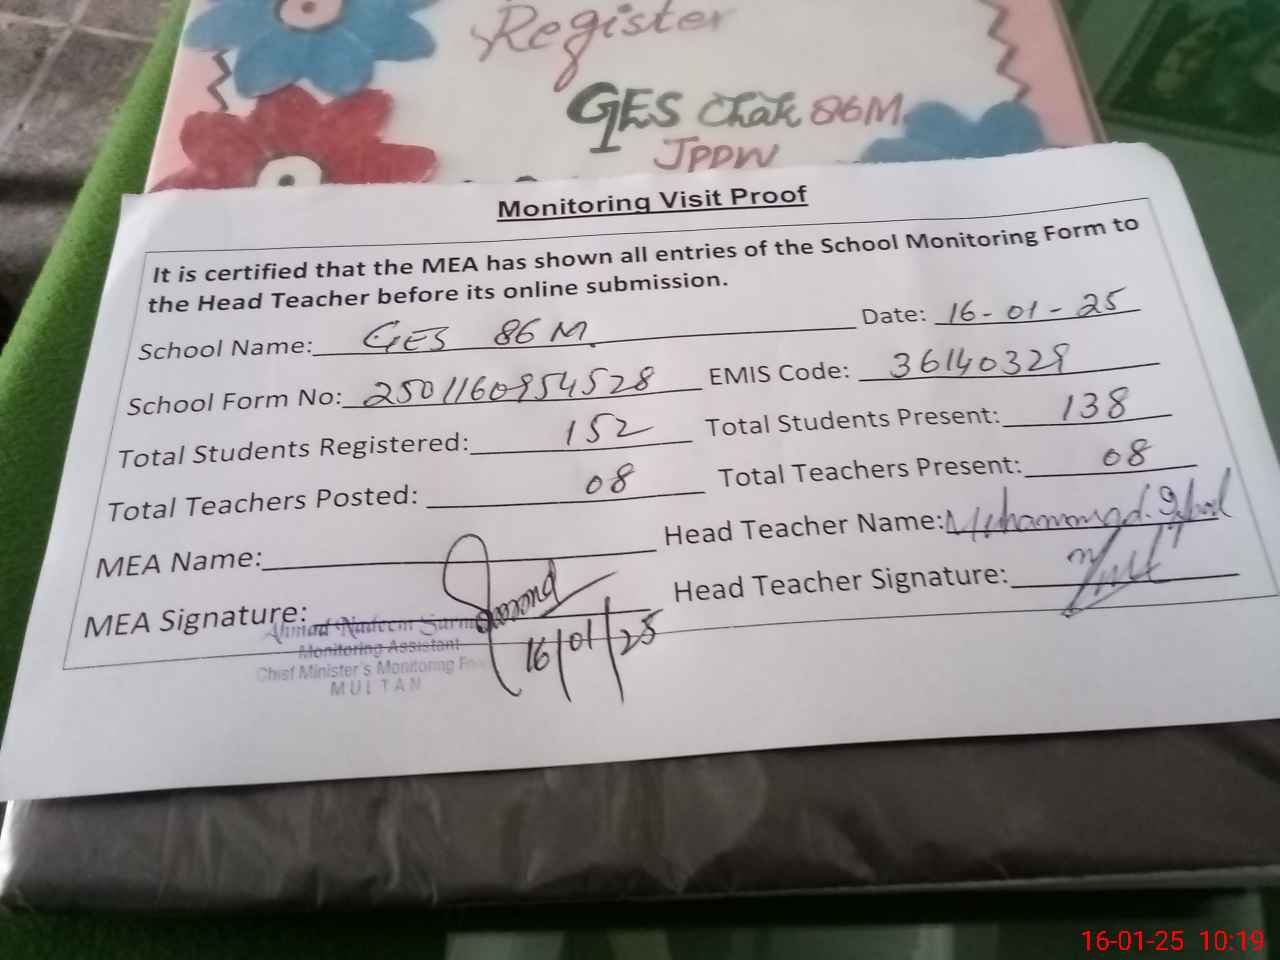 Register
GES Chak 86M
JPPW
Monitoring Visit Proof
It is certified that the MEA has shown all entries of the School Monitoring Form to
the Head Teacher before its online submission.
School Name: GES 86 M Date: 16-01-25
School Form No: 2501160954528 EMIS Code: 36140329
Total Students Registered: 152 Total Students Present: 138
Total Teachers Posted: 08 Total Teachers Present: 08
MEA Name: Head Teacher Name: Muhammad
MEA Signature: Head Teacher Signature:
Ahmad Nadeem
16/01/25
Monitoring Assistant
Chief Minister's Monitoring
MULTAN
16-01-25 10:19